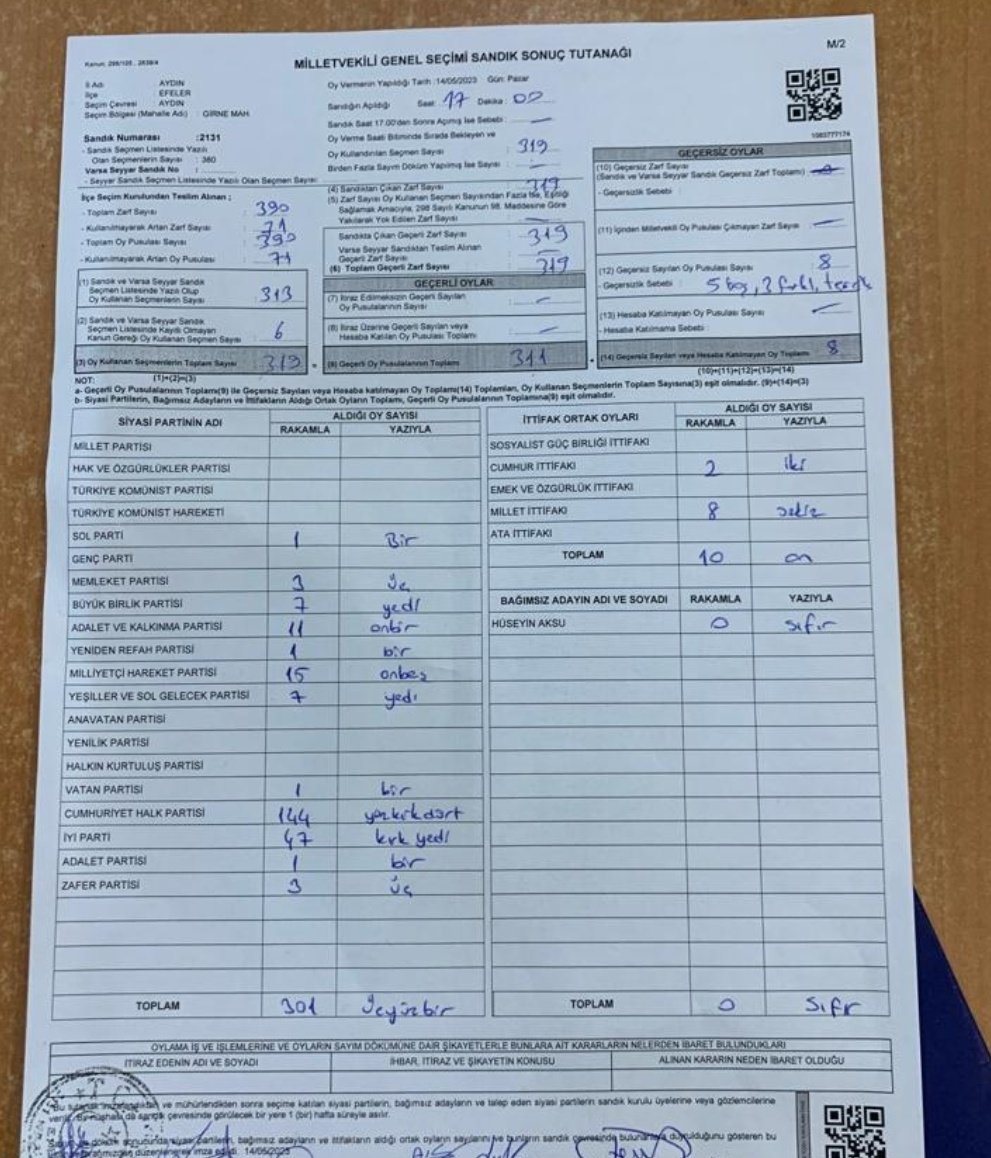 M/2
Kanun: 298/105 , 2839/4
MİLLETVEKİLİ GENEL SEÇİMİ SANDIK SONUÇ TUTANAĞI
İl Adı AYDIN
İlçe EFELER
Seçim Çevresi AYDIN
Seçim Bölgesi (Mahalle Adı) : GİRNE MAH.
Sandık Numarası :2131
- Sandık Seçmen Listesinde Yazılı
Olan Seçmenlerin Sayısı : 360
Varsa Seyyar Sandık No :
- Seyyar Sandık Seçmen Listesinde Yazılı Olan Seçmen Sayısı:
Oy Vermenin Yapıldığı Tarih :14/05/2023 Gün: Pazar
Sandığın Açıldığı Saat: 17 Dakika : 00
Sandık Saat 17.00'den Sonra Açılmış İse Sebebi : —
Oy Verme Saati Bitiminde Sırada Bekleyen ve
Oy Kullandırılan Seçmen Sayısı : 319
Birden Fazla Sayım Döküm Yapılmış İse Sayısı : —
1083777174
İlçe Seçim Kurulundan Teslim Alınan ;
- Toplam Zarf Sayısı : 390
- Kullanılmayarak Artan Zarf Sayısı : 71
- Toplam Oy Pusulası Sayısı : 390
- Kullanılmayarak Artan Oy Pusulası : 71
(4) Sandıktan Çıkan Zarf Sayısı : 319
(5) Zarf Sayısı Oy Kullanan Seçmen Sayısından Fazla İse, Eşitliği
Sağlamak Amacıyla, 298 Sayılı Kanunun 98. Maddesine Göre
Yakılarak Yok Edilen Zarf Sayısı : —
Sandıkta Çıkan Geçerli Zarf Sayısı : 319
Varsa Seyyar Sandıktan Teslim Alınan
Geçerli Zarf Sayısı : —
(6) Toplam Geçerli Zarf Sayısı : 319
GEÇERSİZ OYLAR
(10) Geçersiz Zarf Sayısı
(Sandık ve Varsa Seyyar Sandık Geçersiz Zarf Toplamı) :
- Geçersizlik Sebebi :
(11) İçinden Milletvekili Oy Pusulası Çıkmayan Zarf Sayısı : —
(12) Geçersiz Sayılan Oy Pusulası Sayısı : 8
- Geçersizlik Sebebi : 5 boş, 2
(13) Hesaba Katılmayan Oy Pusulası Sayısı : —
- Hesaba Katılmama Sebebi :
(14) Geçersiz Sayılan veya Hesaba Katılmayan Oy Toplamı : 8
(10)+(11)+(12)+(13)=(14)
(1) Sandık ve Varsa Seyyar Sandık
Seçmen Listesinde Yazılı Olup
Oy Kullanan Seçmenlerin Sayısı : 313
(2) Sandık ve Varsa Seyyar Sandık
Seçmen Listesinde Kayıtlı Olmayan
Kanun Gereği Oy Kullanan Seçmen Sayısı : 6
(3) Oy Kullanan Seçmenlerin Toplam Sayısı : 319
(1)+(2)=(3)
GEÇERLİ OYLAR
(7) İtiraz Edilmeksizin Geçerli Sayılan
Oy Pusulalarının Sayısı : —
(8) İtiraz Üzerine Geçerli Sayılan veya
Hesaba Katılan Oy Pusulası Toplamı : —
(9) Geçerli Oy Pusulalarının Toplamı : 311
NOT:
a- Geçerli Oy Pusulalarının Toplamı(9) ile Geçersiz Sayılan veya Hesaba katılmayan Oy Toplamı(14) Toplamları, Oy Kullanan Seçmenlerin Toplam Sayısına(3) eşit olmalıdır. (9)+(14)=(3)
b- Siyasi Partilerin, Bağımsız Adayların ve İttifakların Aldığı Ortak Oyların Toplamı, Geçerli Oy Pusulalarının Toplamına(9) eşit olmalıdır.
SİYASİ PARTİNİN ADI ALDIĞI OY SAYISI
RAKAMLA YAZIYLA
MİLLET PARTİSİ
HAK VE ÖZGÜRLÜKLER PARTİSİ
TÜRKİYE KOMÜNİST PARTİSİ
TÜRKİYE KOMÜNİST HAREKETİ
SOL PARTİ 1 Bir
GENÇ PARTİ
MEMLEKET PARTİSİ 3 üç
BÜYÜK BİRLİK PARTİSİ 7 yedi
ADALET VE KALKINMA PARTİSİ 11 onbir
YENİDEN REFAH PARTİSİ 1 bir
MİLLİYETÇİ HAREKET PARTİSİ 15 onbeş
YEŞİLLER VE SOL GELECEK PARTİSİ 7 yedi
ANAVATAN PARTİSİ
YENİLİK PARTİSİ
HALKIN KURTULUŞ PARTİSİ
VATAN PARTİSİ 1 bir
CUMHURİYET HALK PARTİSİ 144 yüzkırkdört
İYİ PARTİ 47 kırk yedi
ADALET PARTİSİ 1 bir
ZAFER PARTİSİ 3 üç
TOPLAM 301 Üçyüzbir
İTTİFAK ORTAK OYLARI ALDIĞI OY SAYISI
RAKAMLA YAZIYLA
SOSYALİST GÜÇ BİRLİĞİ İTTİFAKI
CUMHUR İTTİFAKI 2 iki
EMEK VE ÖZGÜRLÜK İTTİFAKI
MİLLET İTTİFAKI 8 sekiz
ATA İTTİFAKI
TOPLAM 10 on
BAĞIMSIZ ADAYIN ADI VE SOYADI RAKAMLA YAZIYLA
HÜSEYİN AKSU 0 sıfır
TOPLAM 0 Sıfır
OYLAMA İŞ VE İŞLEMLERİNE VE OYLARIN SAYIM DÖKÜMÜNE DAİR ŞİKAYETLERLE BUNLARA AİT KARARLARIN NELERDEN İBARET BULUNDUKLARI
İTİRAZ EDENİN ADI VE SOYADI İHBAR, İTİRAZ VE ŞİKAYETİN KONUSU ALINAN KARARIN NEDEN İBARET OLDUĞU
Bu tutanak imzalandıktan ve mühürlendikten sonra seçime katılan siyasi partilerin, bağımsız adayların ve talep eden siyasi partilerin sandık kurulu üyelerine veya gözlemcilerine
verilir. Bir nüshası da sandık çevresinde görülecek bir yere 1 (bir) hafta süreyle asılır.
Sayım ve döküm sonucunda siyasi partilerin, bağımsız adayların ve ittifakların aldığı ortak oyların sayılarını ve bunların sandık çevresinde bulunanlara duyurulduğunu gösteren bu
tarafımızdan düzenlenerek imza edildi. 14/05/2023